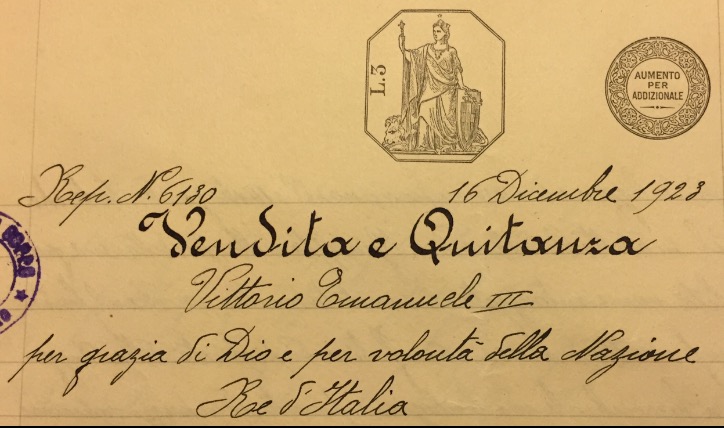 L.3
AUMENTO
PER
ADDIZIONALE
Rep. N. 6130 16 Dicembre 1923
Vendita e Quitanza
Vittorio Emanuele III
per grazia di Dio e per volontà della Nazione
Re d'Italia